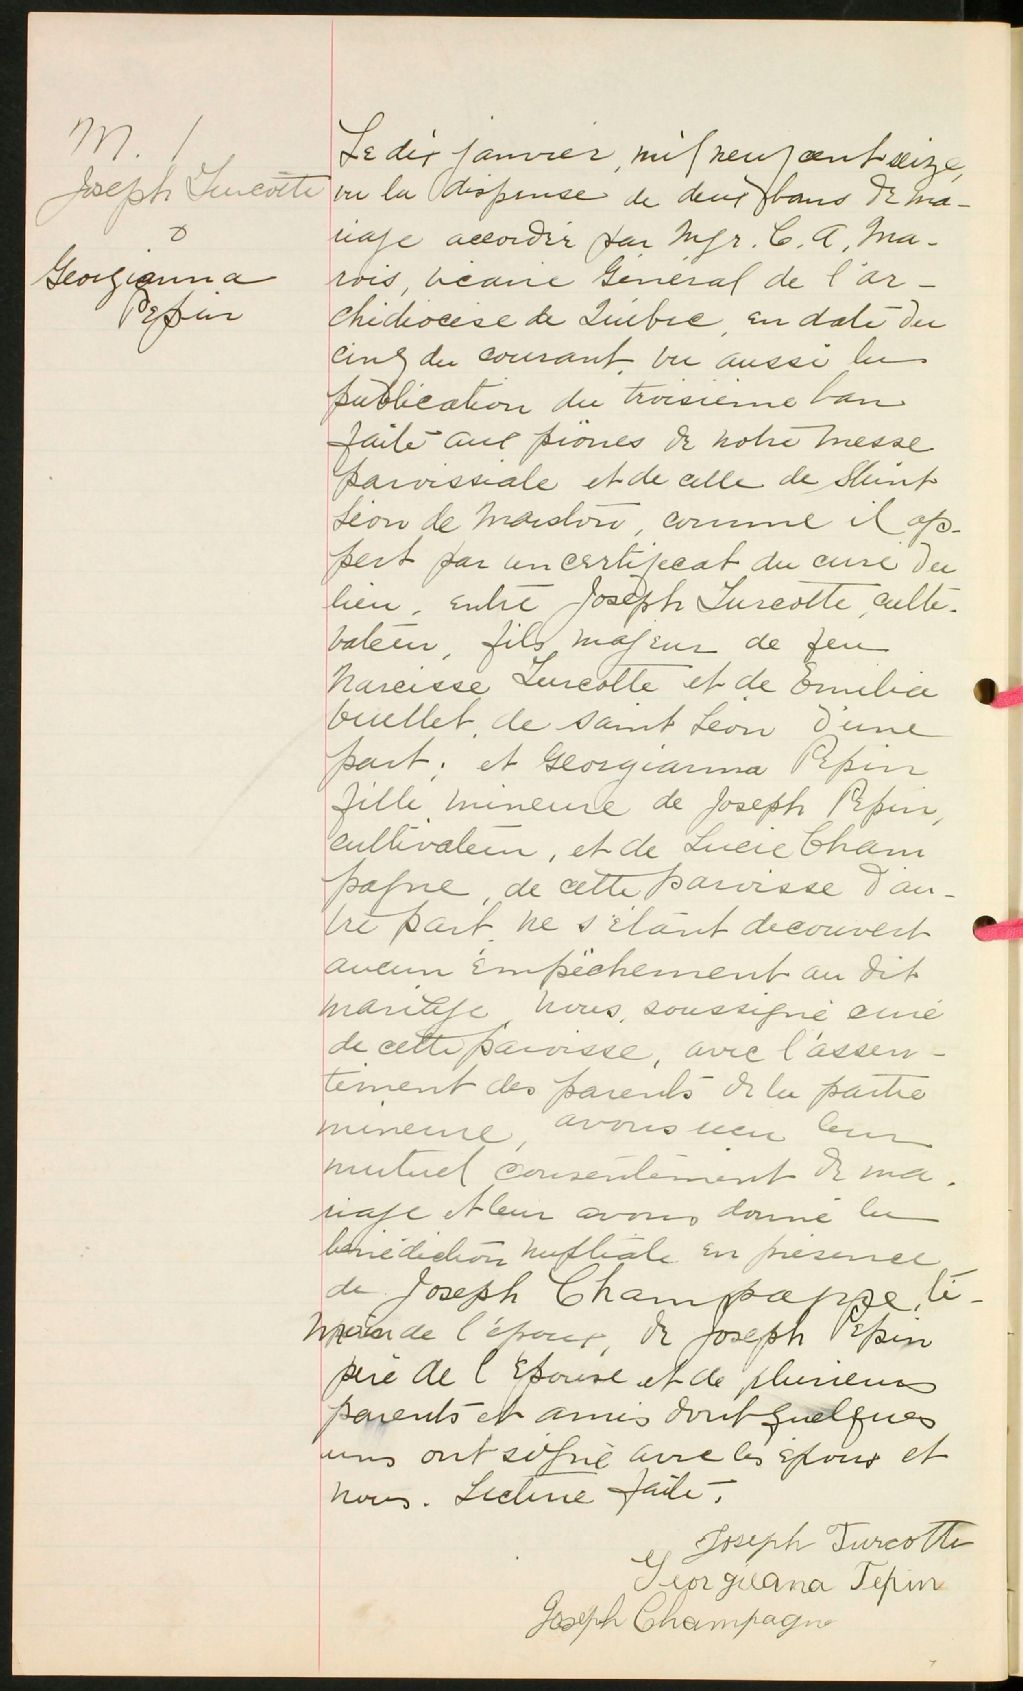 M. 1
Joseph Turcotte
&
Georgianna
Pepin
Le dix janvier, mil neuf cent seize,
vu la dispense de deux bans de ma-
riage accordée par Mgr. C. A. Ma-
rois, vicaire Général de l'ar-
chidiocèse de Québec, en date du
cinq du courant, vu aussi la
publication du troisième ban
faite aux prônes de notre messe
paroissiale et de celle de Saint
Léon de Standon, comme il ap-
pert par un certificat du curé du
lieu, entre Joseph Turcotte, culti-
vateur, fils majeur de feu
Narcisse Turcotte et de Emilia
Ouellet, de Saint Léon d'une
part; et Georgianna Pepin
fille mineure de Joseph Pepin,
cultivateur, et de Lucie Cham
pagne, de cette paroisse d'au-
tre part, ne s'étant découvert
aucun empêchement au dit
mariage, nous, soussigné curé
de cette paroisse, avec l'assen-
tement des parents de la partie
mineure, avons reçu leur
mutuel consentement de ma-
riage et leur avons donné la
bénédiction nuptiale en présence
de Joseph Champagne, té-
moin de l'époux, de Joseph Pepin
père de l'épouse et de plusieurs
parents et amis dont quelques
uns ont signé avec les époux et
nous. Lecture faite.
Joseph Turcotte
Georgieana Pepin
Joseph Champagne